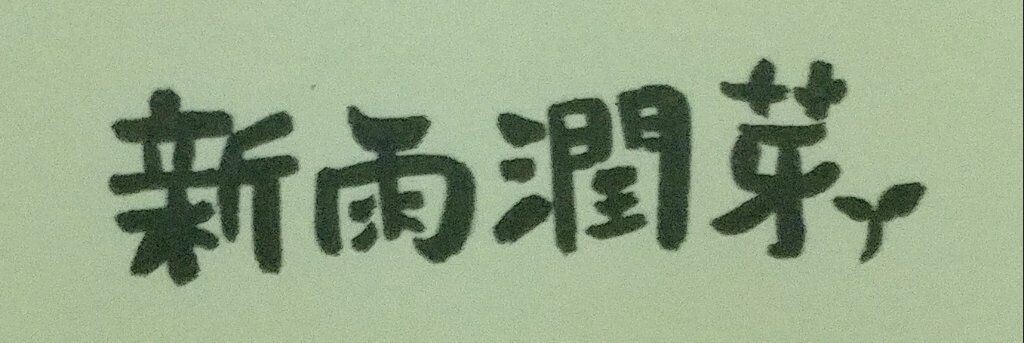 新雨潤芽